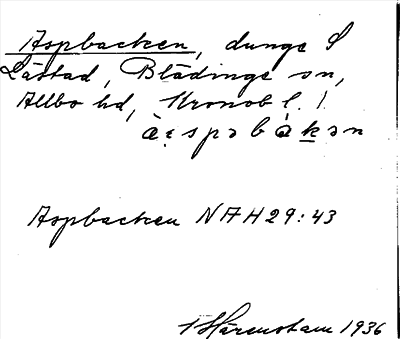 Aspbacken, dunge S
Låstad, Blädinge sn,
Allbo hd, Kronob l.
Aspbacken NAH29:43
Härenstam 1936